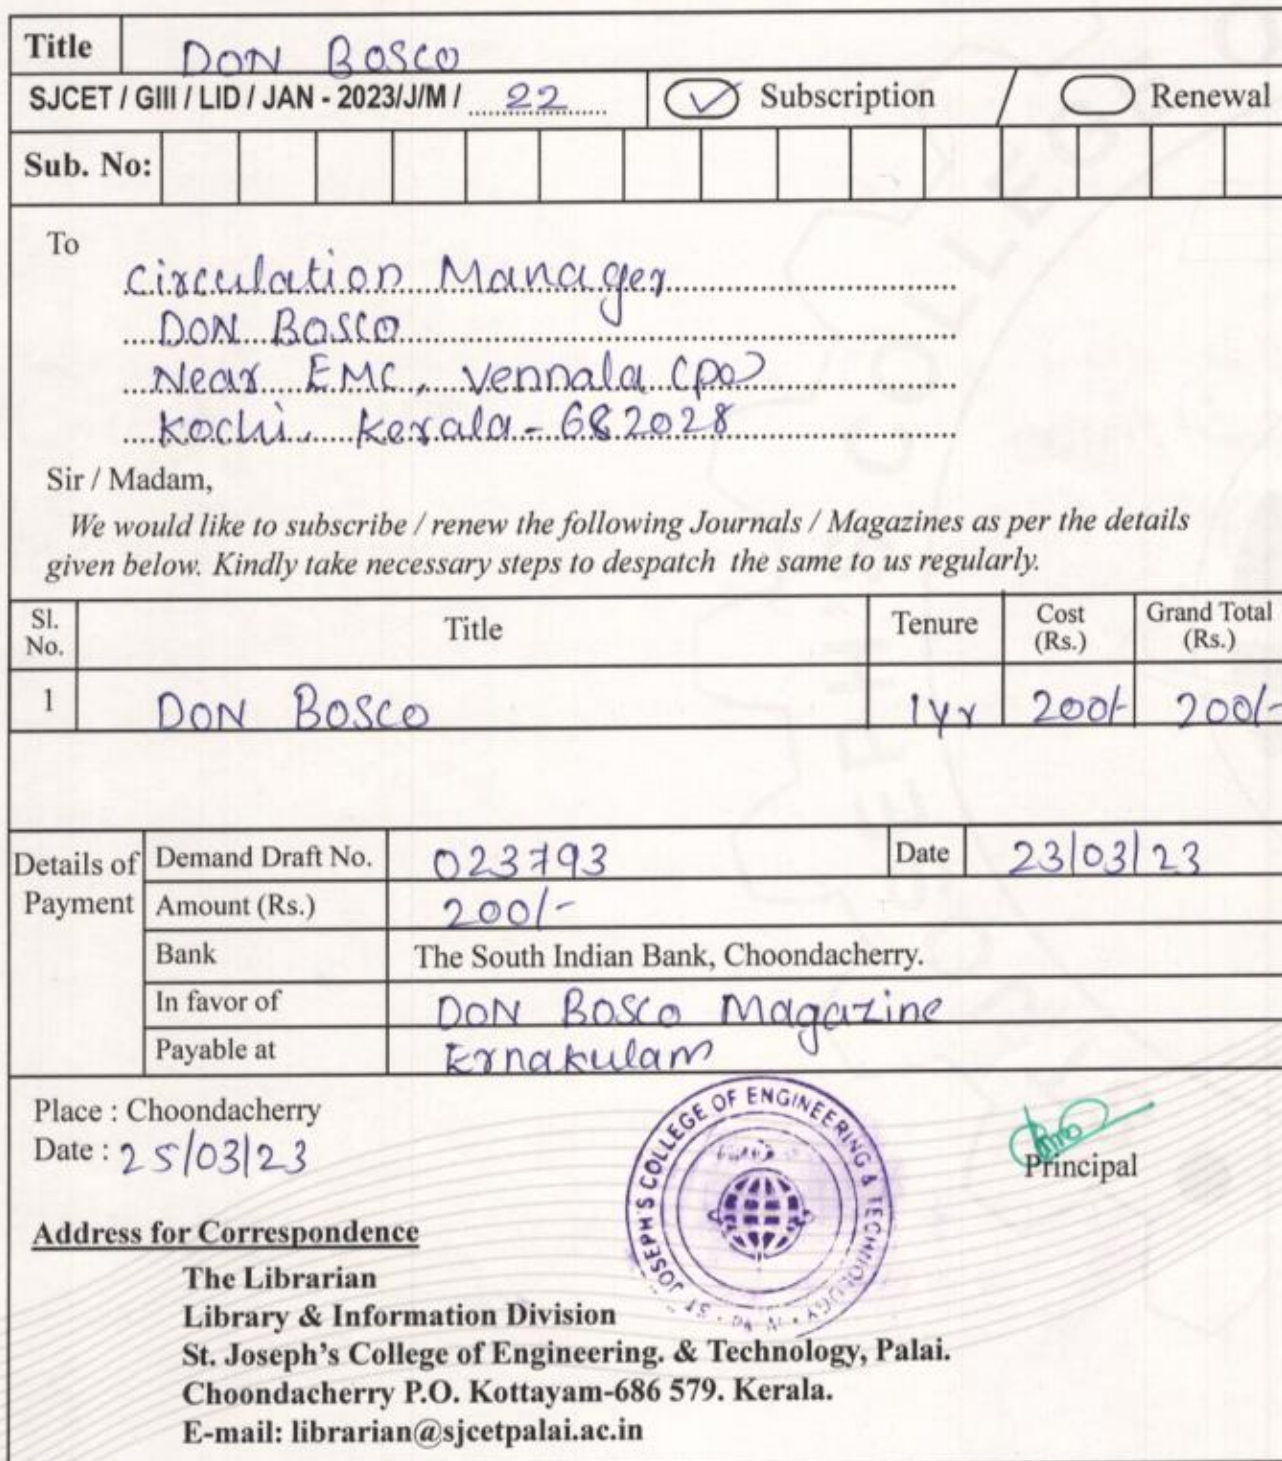 Title DON BOSCO
SJCET / GIII / LID / JAN - 2023/J/M / 22 Subscription / Renewal
Sub. No:
To
Circulation Manager
DON BOSCO
Near EMC, Vennala (po)
Kochi, Kerala - 682028
Sir / Madam,
We would like to subscribe / renew the following Journals / Magazines as per the details
given below. Kindly take necessary steps to despatch the same to us regularly.
Sl. No. Title Tenure Cost (Rs.) Grand Total (Rs.)
1 DON BOSCO 1yr 200/- 200/-
Details of Payment
Demand Draft No. 023793 Date 23/03/23
Amount (Rs.) 200/-
Bank The South Indian Bank, Choondacherry.
In favor of DON BOSCO Magazine
Payable at Ernakulam
Place : Choondacherry
Date : 25/03/23
ST. JOSEPH'S COLLEGE OF ENGINEERING & TECHNOLOGY
Principal
Address for Correspondence
The Librarian
Library & Information Division
St. Joseph's College of Engineering. & Technology, Palai.
Choondacherry P.O. Kottayam-686 579. Kerala.
E-mail: librarian@sjcetpalai.ac.in